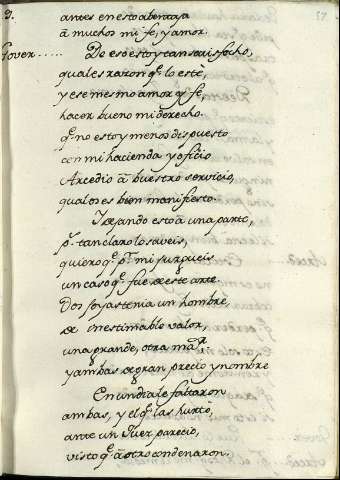 antes en esto abentaja
â muchos mi fe, y amor.
Gover..... De eso estoy tan satisfecho,
qual es razon q.e lo estè,
y ese mesmo amor q.e fe,
hacer bueno mi derecho.
q.e no estoy menos dispuesto
con mi hacienda y oficio
Arcedio â buestro servicio,
qual os es bien manifiesto.
Dejando esto â una parte,
p.s tan claro lo saveis,
quiero q.e p.r mi jurgueis
un caso q.e fue de este arte.
Dos joyas tenia un hombre,
de inestimable valor,
una grande, otra ma.or
y ambas de gran precio y nombre
En un dia le faltaron
ambas, y el q.e las hurtò,
ante un Juez pareciò,
visto q.e â otro condenaron.